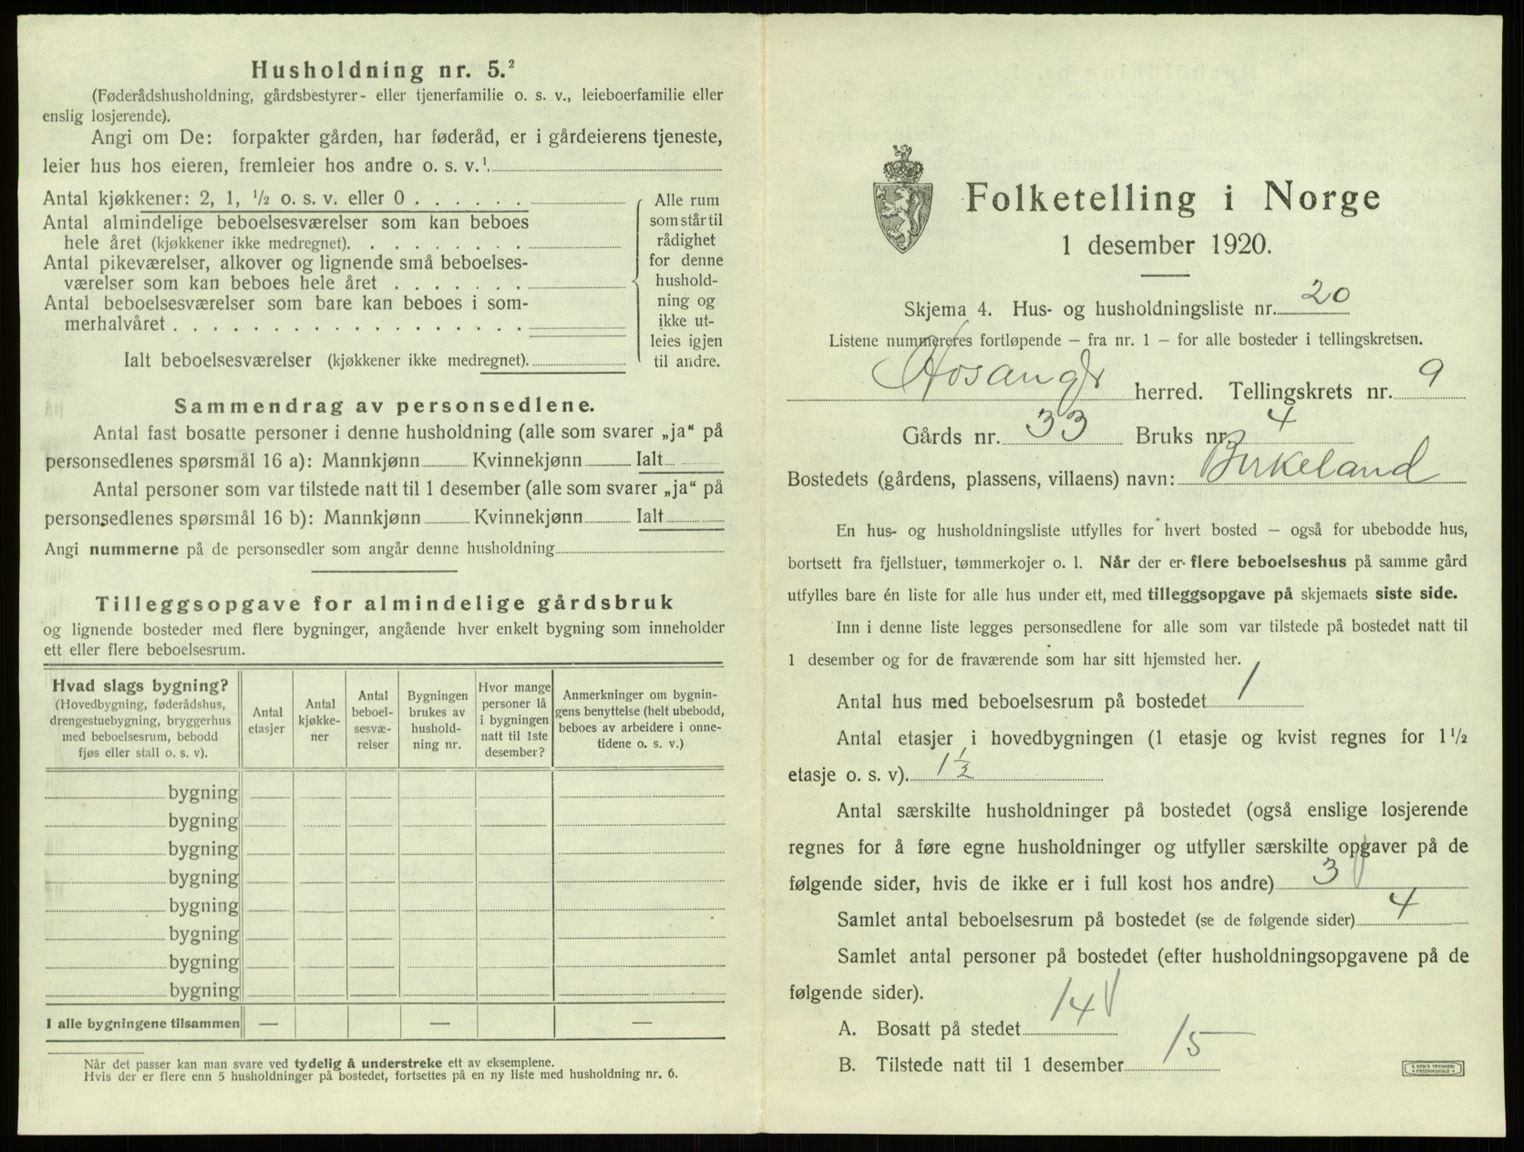 Husholdning nr. 5.²
(Føderådshusholdning, gårdsbestyrer- eller tjenerfamilie o. s. v., leieboerfamilie eller
enslig losjerende).
Angi om De: forpakter gården, har føderåd, er i gårdeierens tjeneste,
leier hus hos eieren, fremleier hos andre o. s. v.¹
Antal kjøkkener: 2, 1, ½ o. s. v. eller 0 . . . . . .
Antal almindelige beboelsesværelser som kan beboes
hele året (kjøkkener ikke medregnet). . . . . . . . .
Antal pikeværelser, alkover og lignende små beboelses-
værelser som kan beboes hele året . . . . . . .
Antal beboelsesværelser som bare kan beboes i som-
merhalvåret . . . . . . . . . . . . . . . . . .
Ialt beboelsesværelser (kjøkkener ikke medregnet).
Alle rum
som står til
rådighet
for denne
hushold-
ning og
ikke ut-
leies igjen
til andre.
Sammendrag av personsedlene.
Antal fast bosatte personer i denne husholdning (alle som svarer „ja“ på
personsedlenes spørsmål 16 a): Mannkjønn Kvinnekjønn Ialt
Antal personer som var tilstede natt til 1 desember (alle som svarer „ja“ på
personsedlenes spørsmål 16 b): Mannkjønn Kvinnekjønn Ialt
Angi nummerne på de personsedler som angår denne husholdning
Tilleggsopgave for almindelige gårdsbruk
og lignende bosteder med flere bygninger, angående hver enkelt bygning som inneholder
ett eller flere beboelsesrum.
Hvad slags bygning?
(Hovedbygning, føderådshus,
drengestuebygning, bryggerhus
med beboelsesrum, bebodd
fjøs eller stall o. s. v).
Antal
etasjer
Antal
kjøkke-
ner
Antal
beboel-
sesvæ-
relser
Bygningen
brukes av
hushold-
ning nr.
Hvor mange
personer lå
i bygningen
natt til 1ste
desember?
Anmerkninger om bygnin-
gens benyttelse (helt ubebodd,
beboes av arbeidere i onne-
tidene o. s. v.)
bygning
bygning
bygning
bygning
bygning
bygning
bygning
bygning
I alle bygningene tilsammen — — —
Når det passer kan man svare ved tydelig å understreke ett av eksemplene.
Hvis der er flere enn 5 husholdninger på bostedet, fortsettes på en ny liste med husholdning nr. 6.
Folketelling i Norge
1 desember 1920.
Skjema 4. Hus- og husholdningsliste nr. 20
Listene nummereres fortløpende — fra nr. 1 — for alle bosteder i tellingskretsen.
Hosanger herred. Tellingskrets nr. 9
Gårds nr. 33 Bruks nr. 4
Bostedets (gårdens, plassens, villaens) navn: Birkeland
En hus- og husholdningsliste utfylles for hvert bosted — også for ubebodde hus,
bortsett fra fjellstuer, tømmerkojer o. l. Når der er flere beboelseshus på samme gård
utfylles bare én liste for alle hus under ett, med tilleggsopgave på skjemaets siste side.
Inn i denne liste legges personsedlene for alle som var tilstede på bostedet natt til
1 desember og for de fraværende som har sitt hjemsted her.
Antal hus med beboelsesrum på bostedet 1
Antal etasjer i hovedbygningen (1 etasje og kvist regnes for 1½
etasje o. s. v). 1½
Antal særskilte husholdninger på bostedet (også enslige losjerende
regnes for å føre egne husholdninger og utfyller særskilte opgaver på de
følgende sider, hvis de ikke er i full kost hos andre) 3
Samlet antal beboelsesrum på bostedet (se de følgende sider) 4
Samlet antal personer på bostedet (efter husholdningsopgavene på de
følgende sider).
A. Bosatt på stedet 14
B. Tilstede natt til 1 desember 15